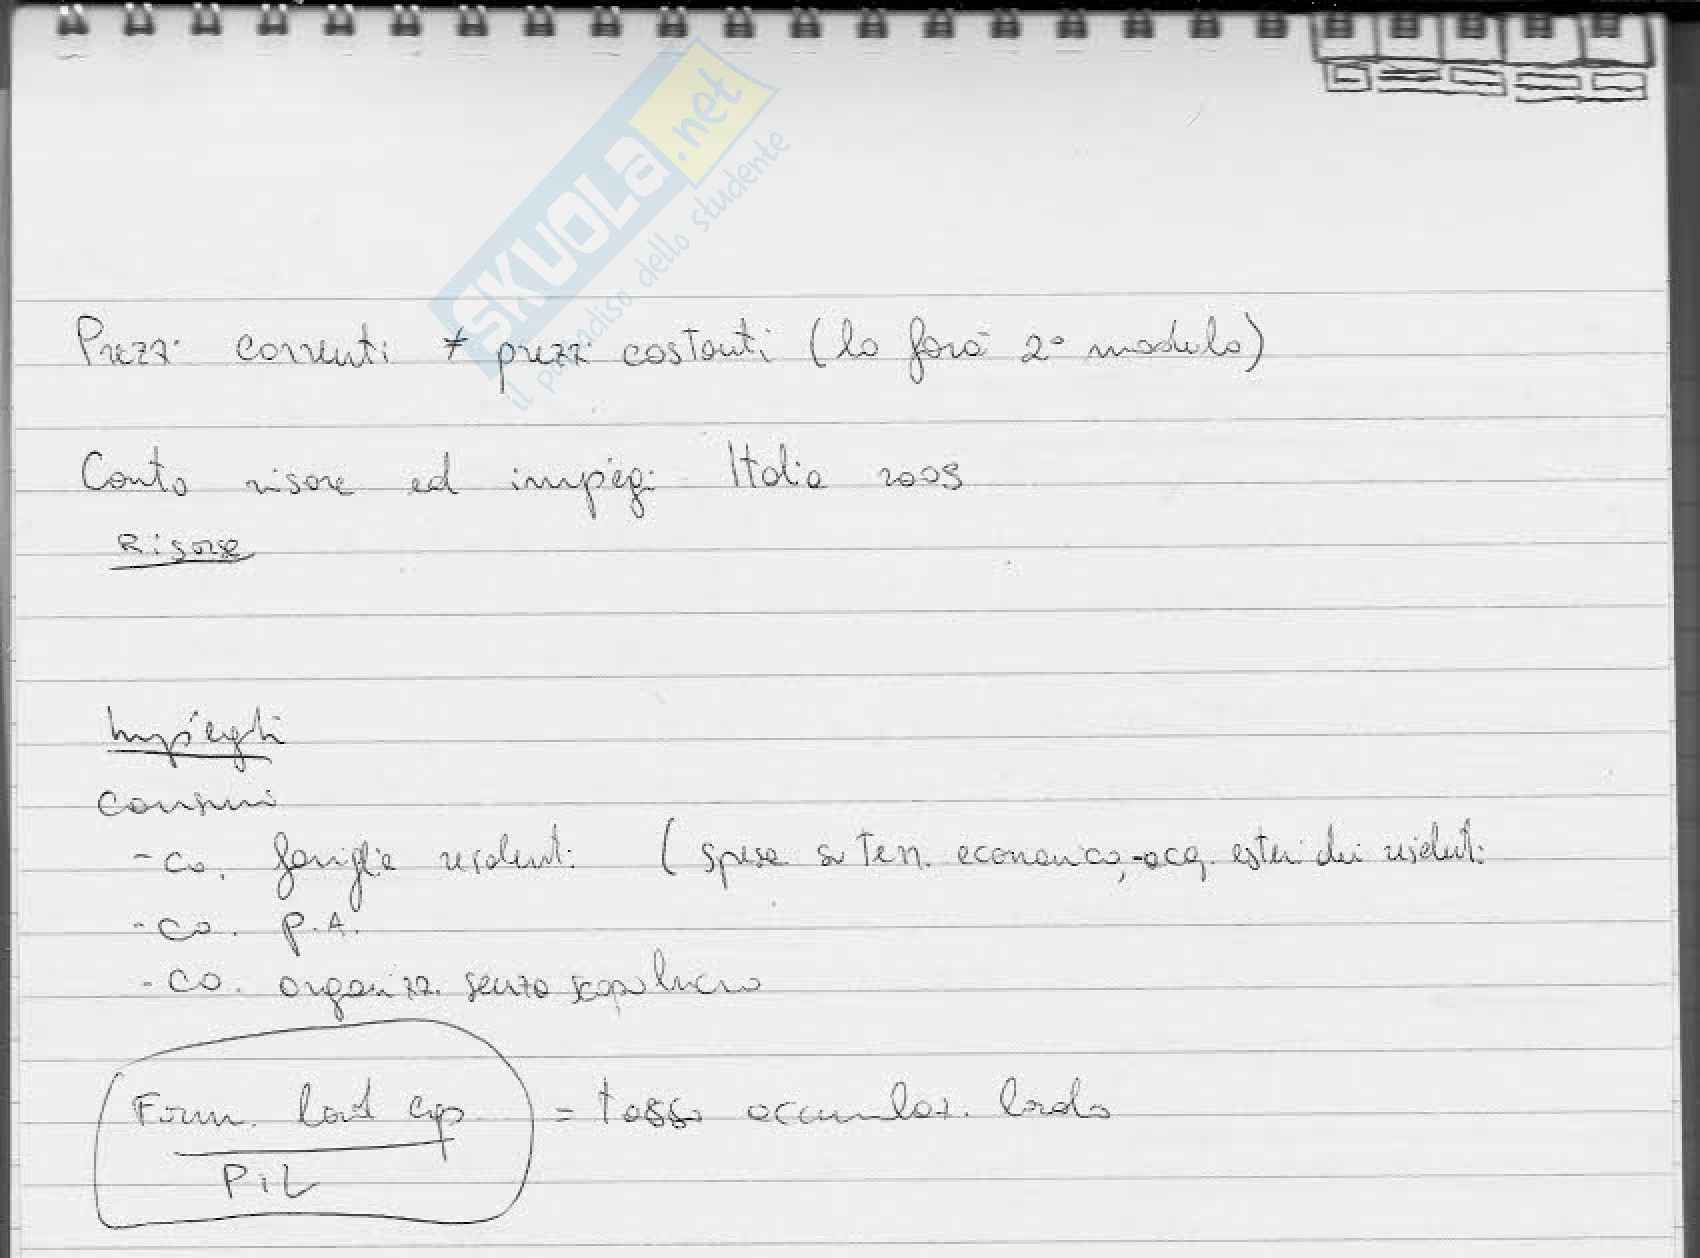 SKUOLa.net
il paradiso dello studente
Prezzi correnti ≠ prezzi costanti (lo farà 2° modulo)
Conto risorse ed impieghi Italia 2009
Risorse
Impieghi
Consumi
- co. famiglie residenti (spesa su terr. economico, - acq. esteri dei residenti
- co. P.A.
- co. organizz. senza scopo lucro
Form. lord cap = tasso accumulaz. lordo
PiL